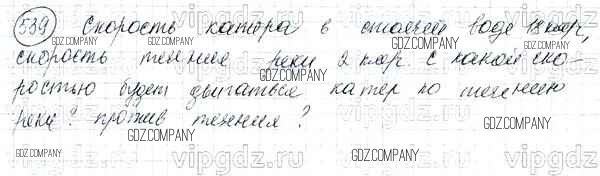 539 Скорость катера в стоячей воде 18 км/ч,
скорость течение реки 2 км/ч. С какой ско-
ростью будет двигаться катер по течению
реки? против течения?
GDZ.COMPANY
vipgdz.ru